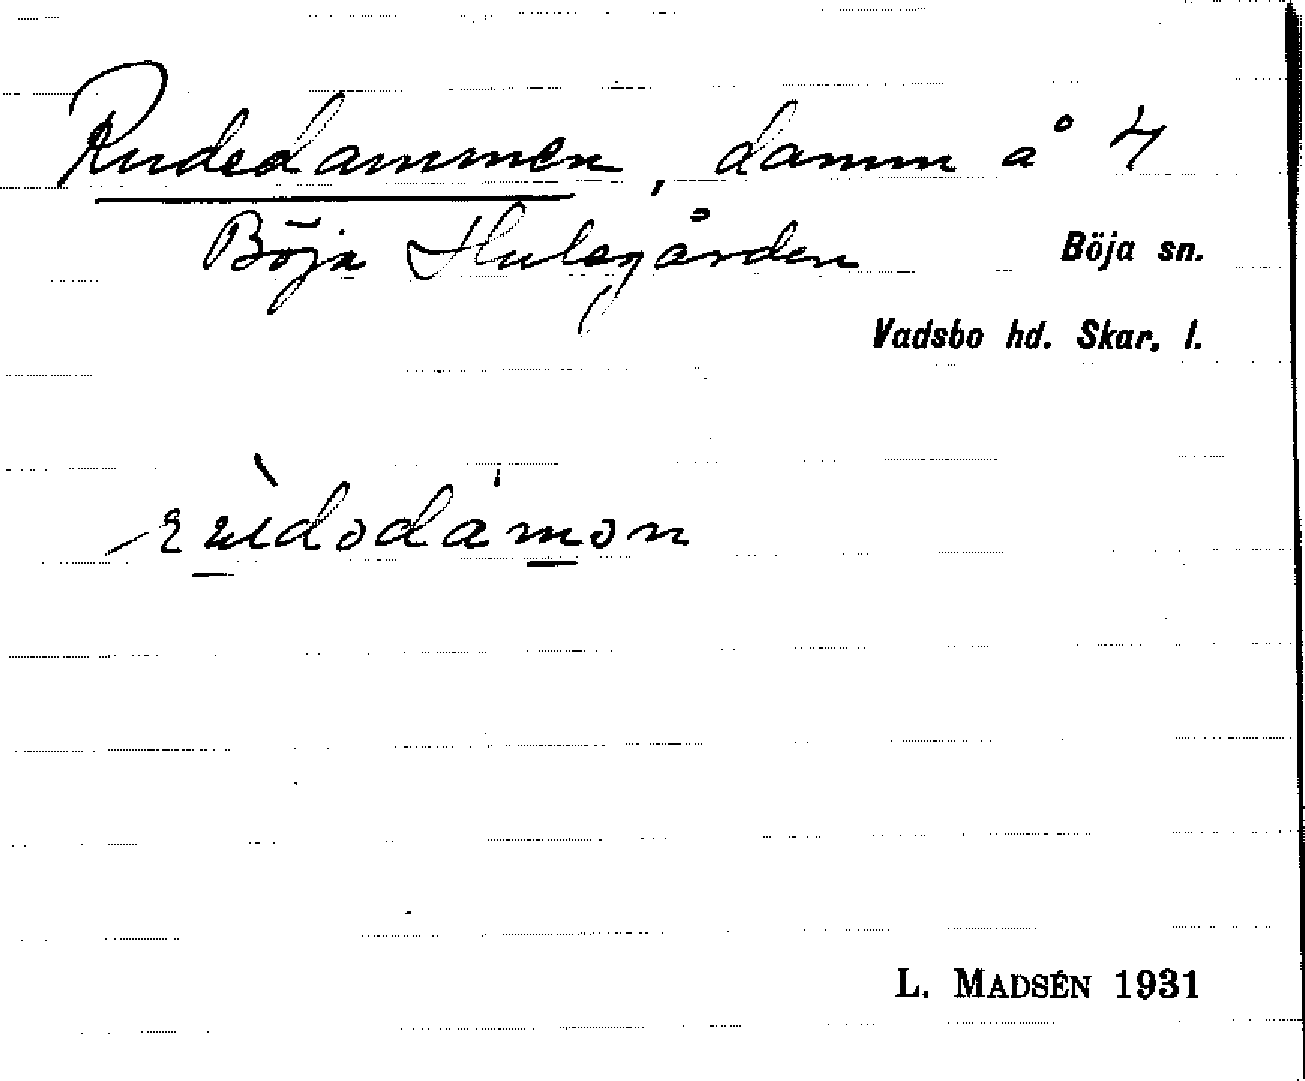 Rudedammen, damm å 4
Böja Hulegården
Böja sn.
Vadsbo hd. Skar. l.
L. MADSÉN 1931